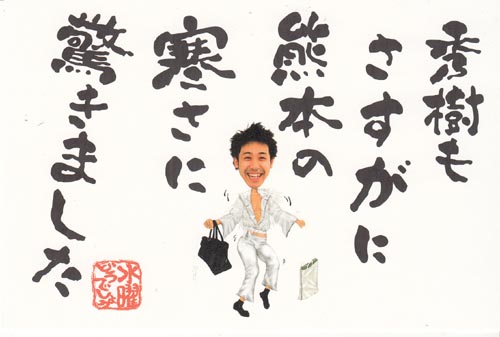 秀樹も
さすがに
熊本の
寒さに
驚きました
水曜
どうでしょう